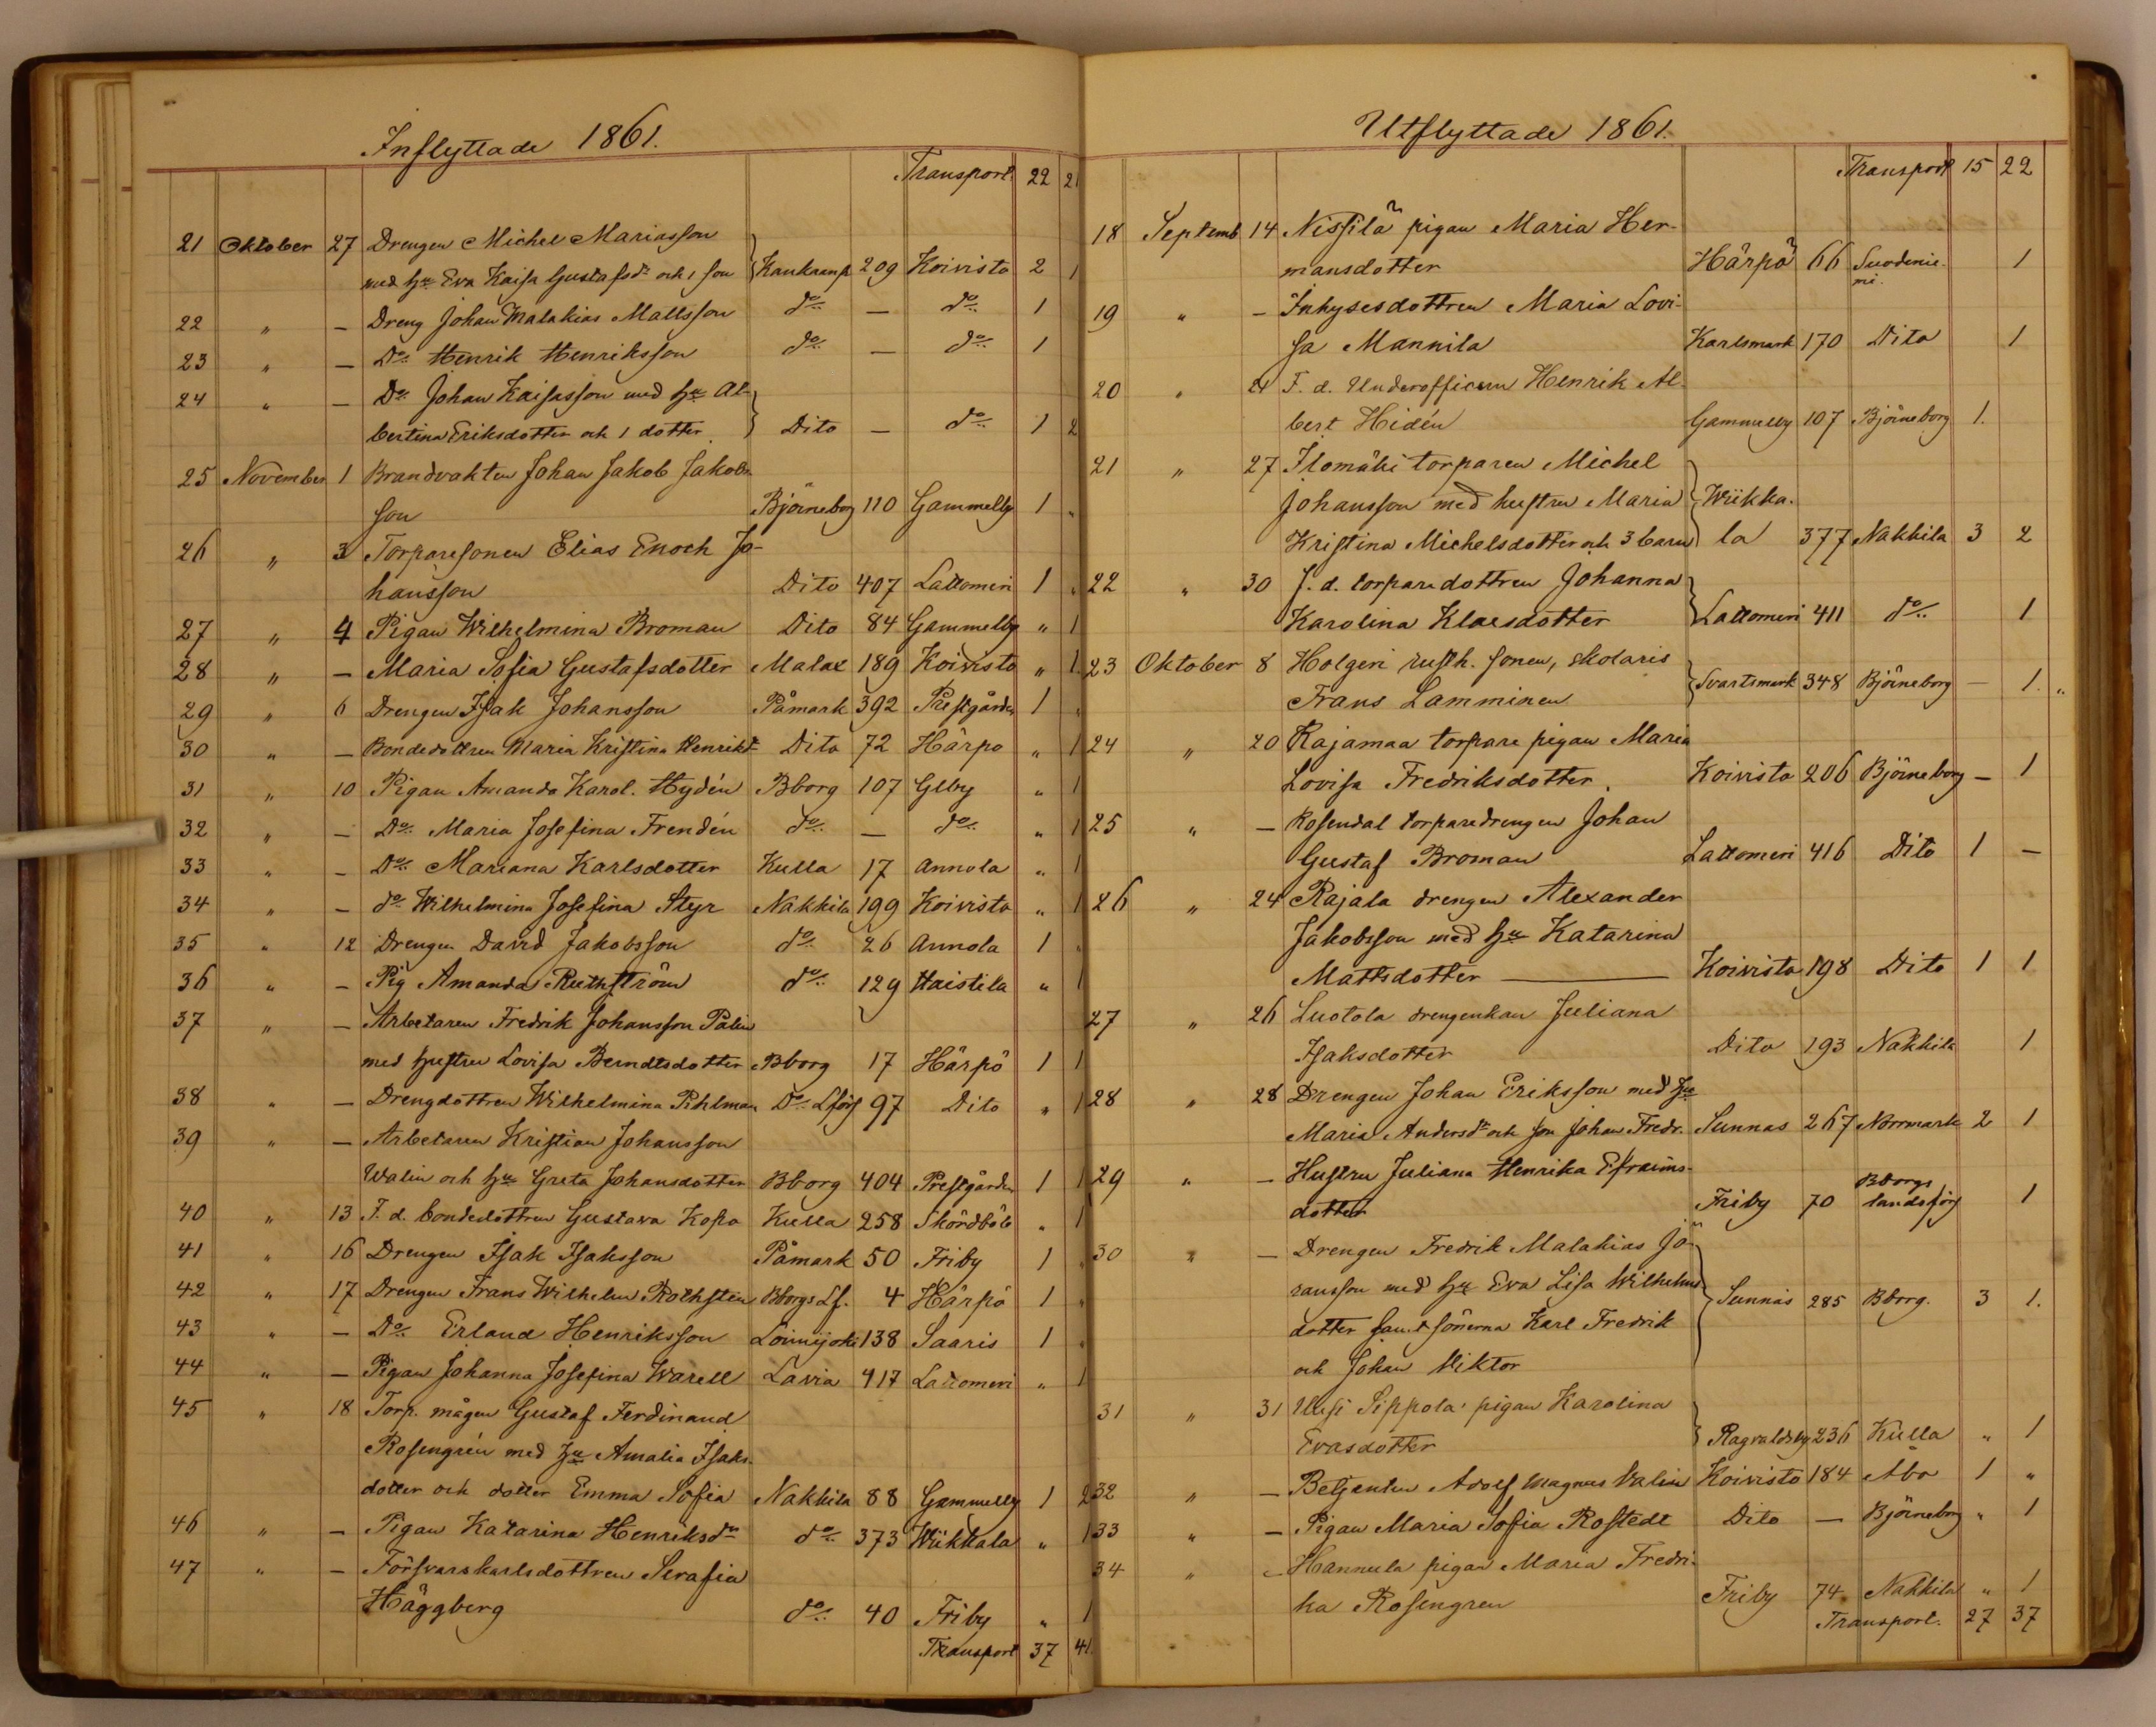 Inflyttade 1861.
Transport 22 21
21 Oktober 27 Drengen Michel Mariasson
med hu Eva Kaisa Gustafsdr och 1 son 209 Koivisto 2 1
22 " — Dreng Johan Malakias Mattsson do — do 1
23 " — Do Henrik Henriksson do — do 1
24 " — Do Johan Kaisasson med hu Al-
bertina Eriksdotter och 1 dotter Dito — do 1 2
25 November 1 Brandvakten Johan Jakob Jakobs-
son Björneborg 110 Gammelby 1 "
26 " 3 Torparesonen Elias Enoch Jo-
hansson Dito 407 Lattomeri 1 "
27 " 4 Pigan Wilhelmina Broman Dito 84 Gammelby " 1
28 " — Maria Sofia Gustafsdotter Malax 189 Koivisto " 1
29 " 6 Drengen Isak Johansson Påmark 392 Prestgården 1 "
30 " — Bondedottren Maria Kristina Henriksdr Dito 72 Härpö " 1
31 " 10 Pigan Amanda Karol. Hydén Bborg 107 Glby " 1
32 " — Do Maria Josefina Frendén do — do " 1
33 " — Do Mariana Karlsdotter Kulla 17 Annola " 1
34 " — do Wilhelmina Josefina Styr Nakkila 199 Koivisto " 1
35 " 12 Drengen David Jakobsson do 26 Annola 1 "
36 " — Pig Amanda Ruthström do 129 Haistila " 1
37 " — Arbetaren Fredrik Johansson Palin
med hustru Lovisa Berndtsdotter Bborg 17 Härpö 1 1
38 " — Drengdottren Wilhelmina Pihlman Do Lförs 97 Dito " 1
39 " — Arbetaren Kristian Johansson
Walin och hu Greta Johansdotter Bborg 404 Prestgården 1 1
40 " 13 F. d. bondedottren Gustava Kopo Kulla 258 Skördböle " 1
41 " 16 Drengen Isak Isaksson Påmark 50 Friby 1 "
42 " 17 Drengen Frans Wilhelm Rothstén Bborgs Lf. 4 Härpö 1 "
43 " — Do Erland Henriksson Loimijoki 138 Saaris 1 "
44 " — Pigan Johanna Josefina Warell Lavia 417 Lattomeri " 1
45 " 18 Torp. mågen Gustaf Ferdinand
Rosengrén med hu Amalia Isaks-
dotter och dotter Emma Sofia Nakkila 88 Gammelby 1 2
46 " — Pigan Katarina Henriksdr do 373 Wiikkala " 1
47 " — Försvarskarlsdottren Serafia
Häggberg do 40 Friby " 1
Transport 37 41.
Utflyttade 1861.
Transport 15 22
18 Septemb 14 Nissilä pigan Maria Her-
mansdotter Härpö 66 Suodenie-
mi. 1
19 " — Inhysesdottren Maria Lovi-
sa Mannila Karlsmark 170 Dito 1
20 " 21 F. d. Underofficern Henrik Al-
bert Hidén Gammelby 107 Björneborg 1.
21 " 27 Ilomäki torparen Michel
Johansson med hustru Maria Wiikka-
Kristina Michelsdotter och 3 barn la 377 Nakkila 3 2
22 " 30 f. d. torparedottren Johanna
Karolina Klaesdotter Lattomeri 411 do 1
23 Oktober 8 Holgeri rusth. sonen, skolaris
Frans Lamminen Svartsmark 348 Björneborg — 1. "
24 " 20 Rajamaa torpare pigan Maria
Lovisa Fredriksdotter. Koivisto 206 Björneborg — 1
25 " — Rosendal torparedrengen Johan
Gustaf Broman Lattomeri 416 Dito 1 —
26 " 24 Rajala drengen Alexander
Jakobsson med hu Katarina
Mattsdotter — Koivisto 198 Dito 1 1
27 " 26 Luotola drengenkan Juliana
Isaksdotter Dito 193 Nakkila 1
28 " 28 Drengen Johan Eriksson med hu
Maria Andersdr och son Johan Fredr. Sunnas 267 Norrmark 2 1
29 " — Hustru Juliana Henrika Efraims-
dotter Friby 70 Bborgs
landsförs 1
30 " — Drengen Fredrik Malakias Jö-
ransson med hu Eva Lisa Wilhelms-
dotter samt sönerna Karl Fredrik Sunnäs 285 Bborg. 3 1.
och Johan Viktor
31 " 31 Uusi Sippola pigan Karolina
Evasdotter Ragvaldsby 236 Kulla " 1
32 " — Betjenten Adolf Magnus Valin Koivisto 184 Åbo 1 "
33 " — Pigan Maria Sofia Rostedt Dito — Björneborg " 1
34 " — Hannula pigan Maria Fredri-
ka Rosengren Friby 74 Nakkila " 1
Transport. 27 37